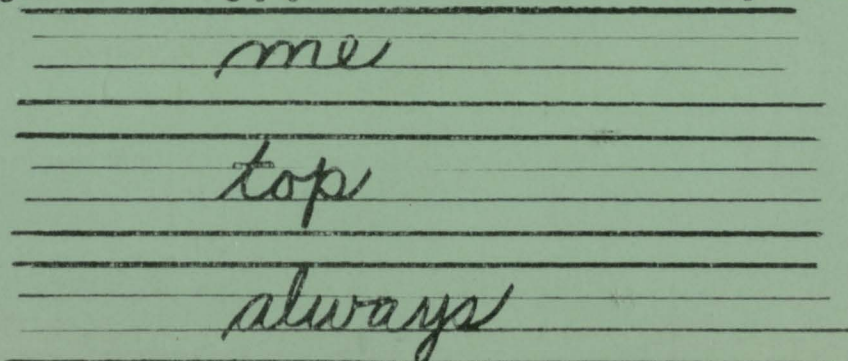 me
top
always